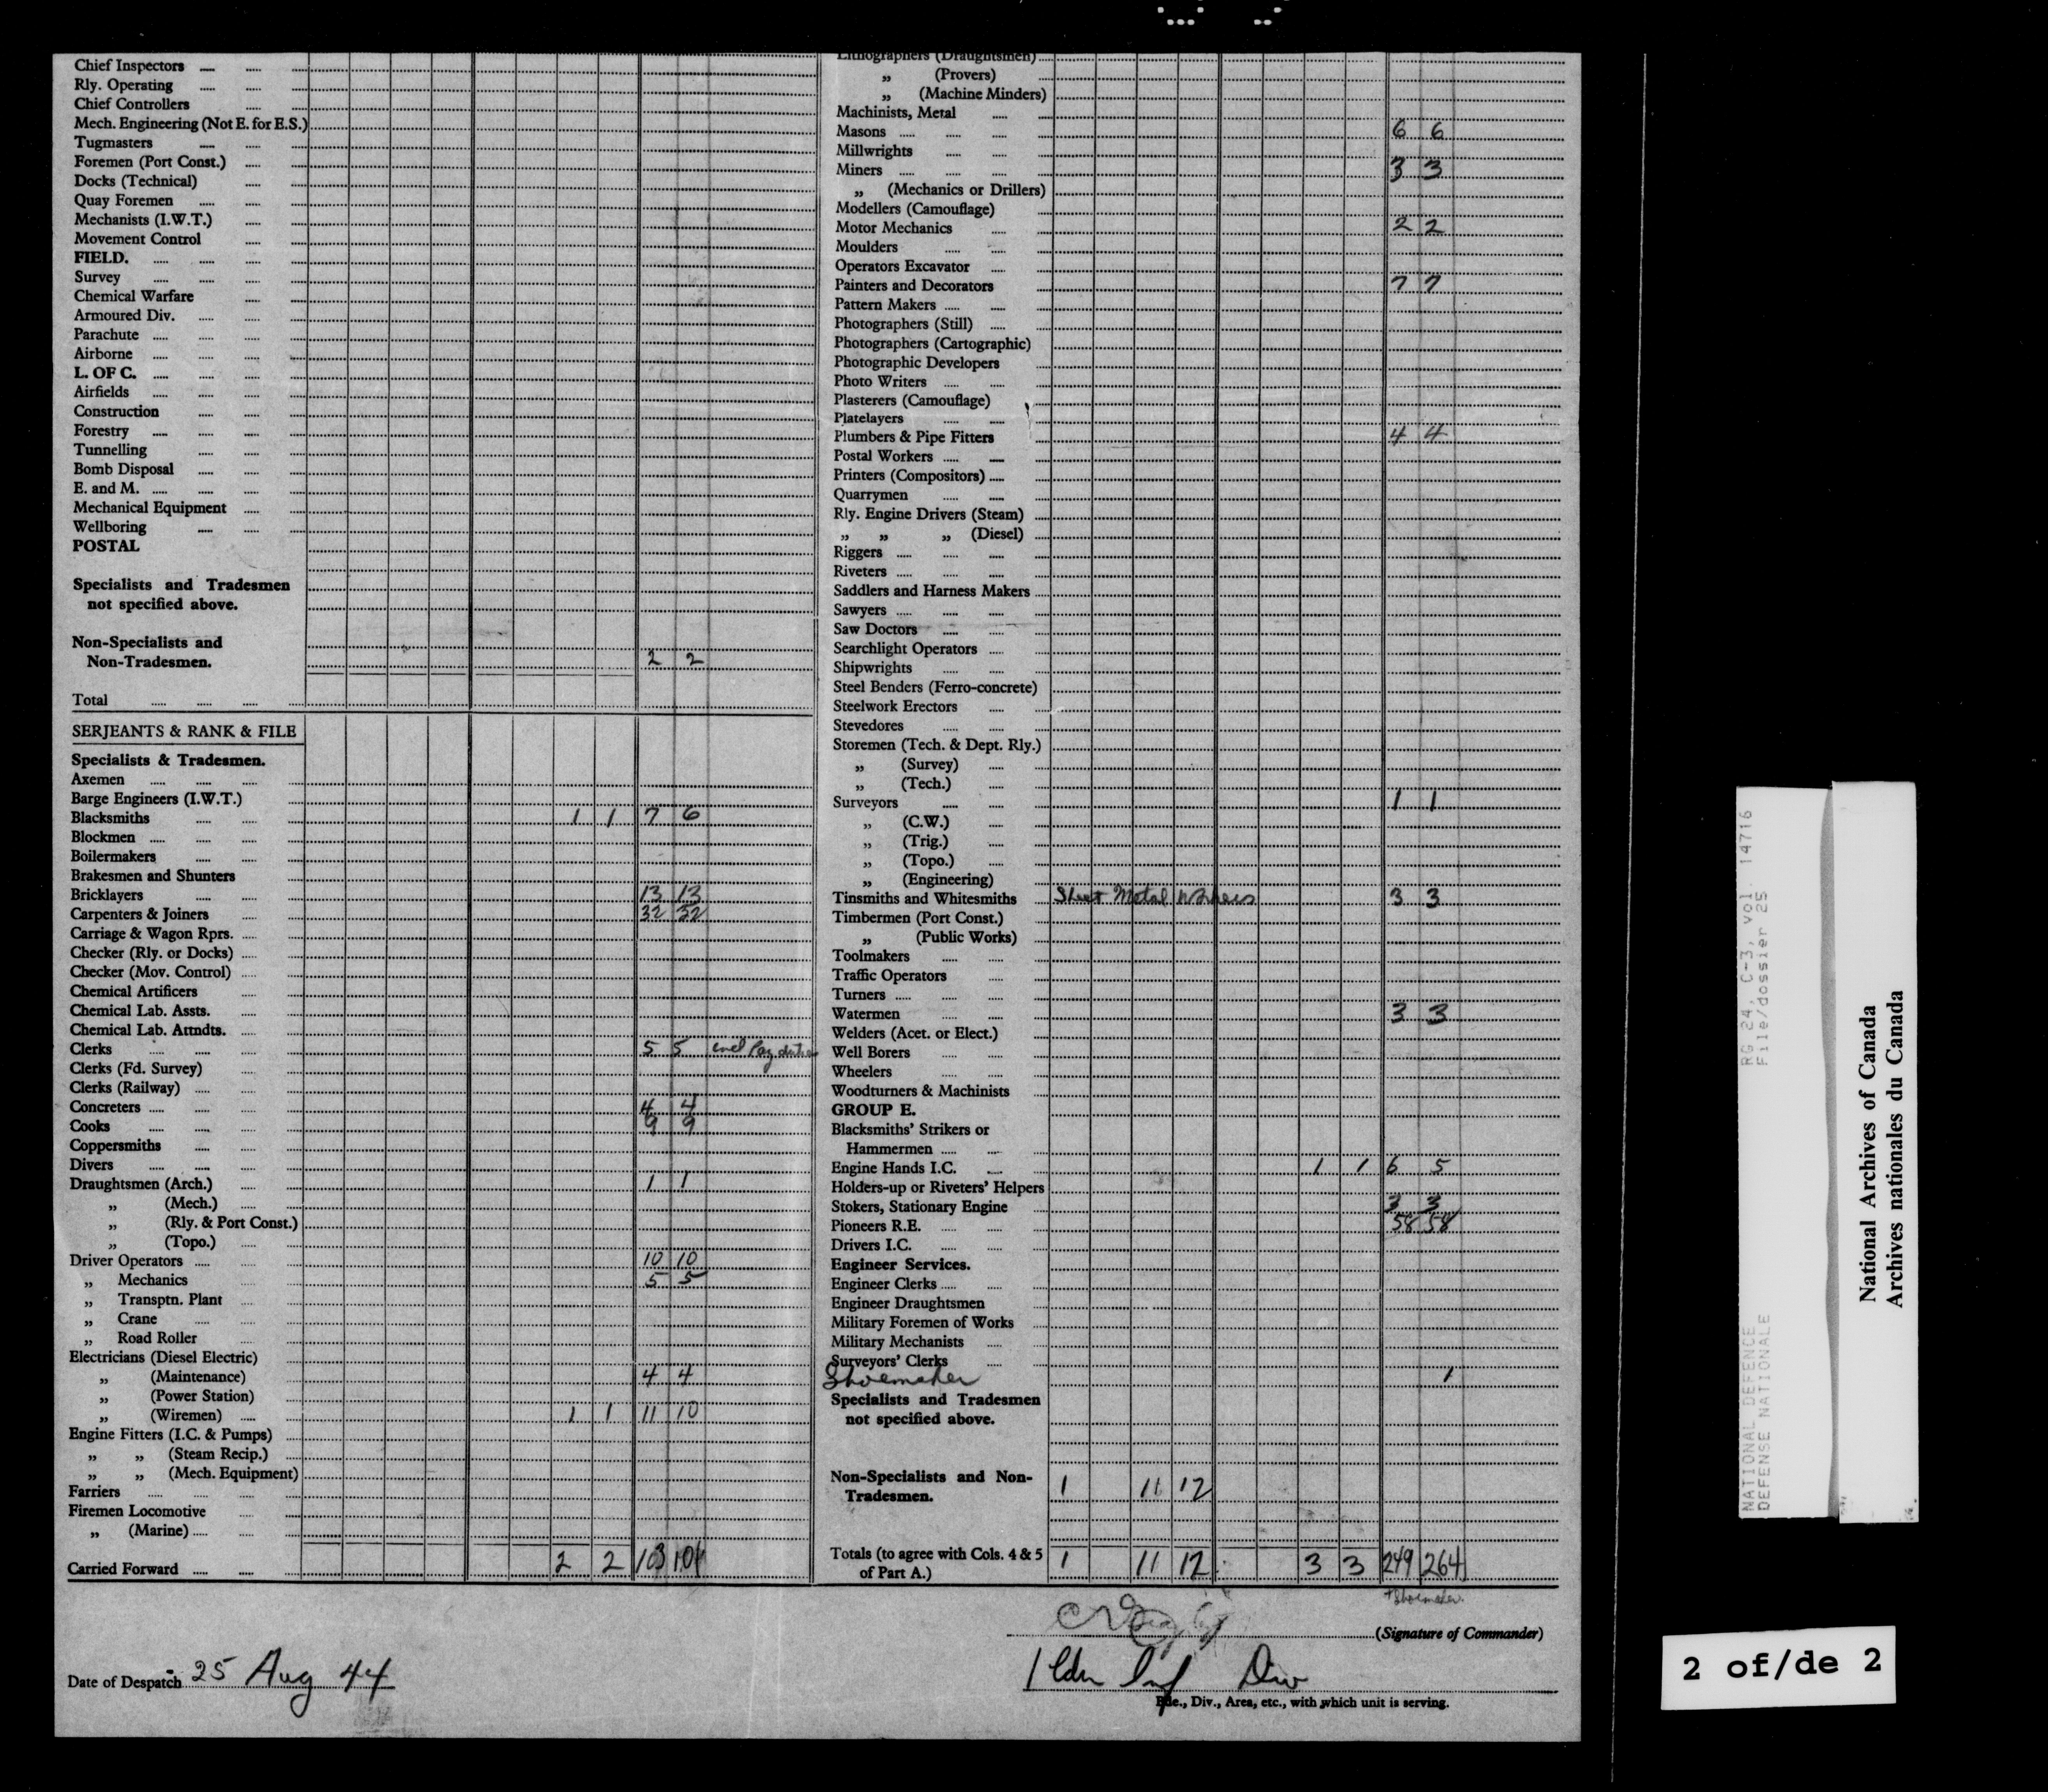 Chief Inspectors
Rly. Operating
Chief Controllers
Mech. Engineering (Not E. for E.S.)
Tugmasters
Foremen (Port Const.)
Docks (Technical)
Quay Foremen
Mechanists (I.W.T.)
Movement Control
FIELD.
Survey
Chemical Warfare
Armoured Div.
Parachute
Airborne
L. OF C.
Airfields
Construction
Forestry
Tunnelling
Bomb Disposal
E. and M.
Mechanical Equipment
Wellboring
POSTAL
Specialists and Tradesmen
not specified above.
Non-Specialists and
Non-Tradesmen. 2 2
Total
SERJEANTS & RANK & FILE
Specialists & Tradesmen.
Axemen
Barge Engineers (I.W.T.)
Blacksmiths 1 1 7 6
Blockmen
Boilermakers
Brakesmen and Shunters
Bricklayers 13 13
Carpenters & Joiners 32 32
Carriage & Wagon Rprs.
Checker (Rly. or Docks)
Checker (Mov. Control)
Chemical Artificers
Chemical Lab. Assts.
Chemical Lab. Attndts.
Clerks 5 5 incl Pay
Clerks (Fd. Survey)
Clerks (Railway)
Concreters 4 4
Cooks 9 9
Coppersmiths
Divers
Draughtsmen (Arch.) 1 1
„ (Mech.)
„ (Rly. & Port Const.)
„ (Topo.)
Driver Operators 10 10
„ Mechanics 5 5
„ Transptn. Plant
„ Crane
„ Road Roller
Electricians (Diesel Electric)
„ (Maintenance) 4 4
„ (Power Station)
„ (Wiremen) 1 1 11 10
Engine Fitters (I.C. & Pumps)
„ „ (Steam Recip.)
„ „ (Mech. Equipment)
Farriers
Firemen Locomotive
„ (Marine)
Carried Forward 2 2 103 101
Lithographers (Draughtsmen)
„ (Provers)
„ (Machine Minders)
Machinists, Metal
Masons 6 6
Millwrights
Miners 3 3
„ (Mechanics or Drillers)
Modellers (Camouflage)
Motor Mechanics 2 2
Moulders
Operators Excavator
Painters and Decorators 7 7
Pattern Makers
Photographers (Still)
Photographers (Cartographic)
Photographic Developers
Photo Writers
Plasterers (Camouflage)
Platelayers
Plumbers & Pipe Fitters 4 4
Postal Workers
Printers (Compositors)
Quarrymen
Rly. Engine Drivers (Steam)
„ „ „ (Diesel)
Riggers
Riveters
Saddlers and Harness Makers
Sawyers
Saw Doctors
Searchlight Operators
Shipwrights
Steel Benders (Ferro-concrete)
Steelwork Erectors
Stevedores
Storemen (Tech. & Dept. Rly.)
„ (Survey)
„ (Tech.)
Surveyors 1 1
„ (C.W.)
„ (Trig.)
„ (Topo.)
„ (Engineering)
Tinsmiths and Whitesmiths Sheet Metal Workers 3 3
Timbermen (Port Const.)
„ (Public Works)
Toolmakers
Traffic Operators
Turners
Watermen 3 3
Welders (Acet. or Elect.)
Well Borers
Wheelers
Woodturners & Machinists
GROUP E.
Blacksmiths' Strikers or
Hammermen
Engine Hands I.C. 1 1 6 5
Holders-up or Riveters' Helpers
Stokers, Stationary Engine 3 3
Pioneers R.E. 58 58
Drivers I.C.
Engineer Services.
Engineer Clerks
Engineer Draughtsmen
Military Foremen of Works
Military Mechanists
Surveyors' Clerks
Shoemaker 1
Specialists and Tradesmen
not specified above.
Non-Specialists and Non-
Tradesmen. 1 11 12
Totals (to agree with Cols. 4 & 5
of Part A.) 1 11 12 3 3 249 264
+ Shoemaker
(Signature of Commander)
Date of Despatch 25 Aug 44
1 Cdn Inf Div
Bde., Div., Area, etc., with which unit is serving.
RG 24, C-3, vol. 14716
File/dossier 25
NATIONAL DEFENCE
DEFENSE NATIONALE
National Archives of Canada
Archives nationales du Canada
2 of/de 2